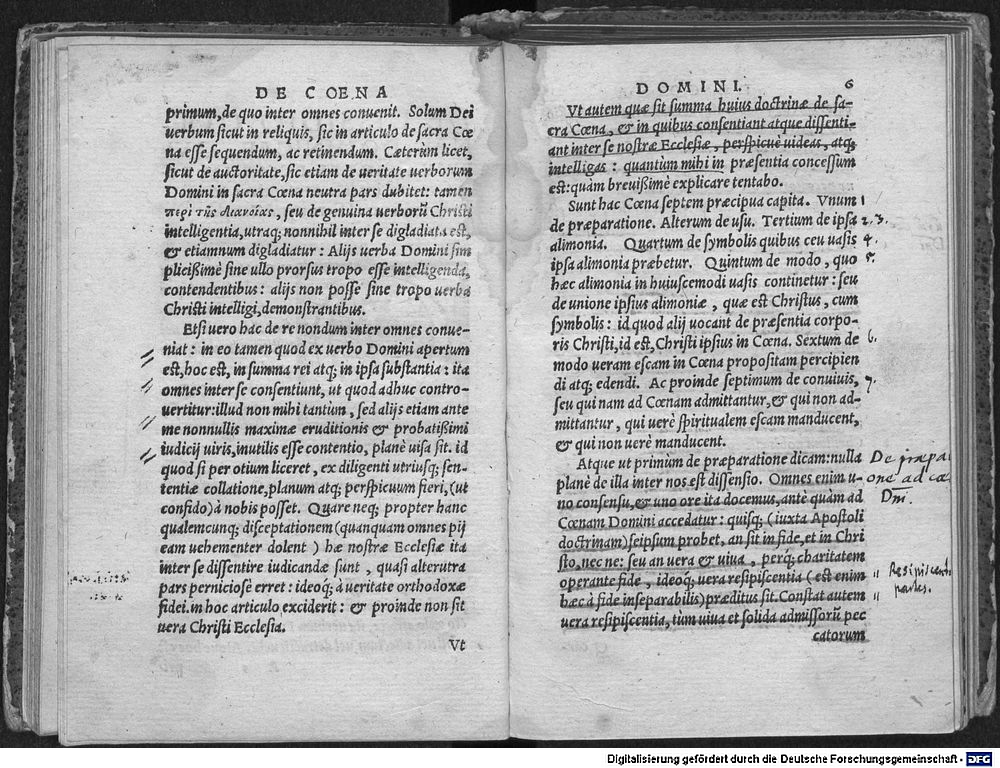 DE COENA
primum, de quo inter omnes conuenit. Solum Dei
uerbum sicut in reliquis, sic in articulo de sacra Cœ
na esse sequendum, ac retinendum. Cæterùm licet,
sicut de auctoritate, sic etiam de ueritate uerborum
Domini in sacra Cœna neutra pars dubitet: tamen
περὶ τῆς διανοίας, seu de genuina uerborũ Christi
intelligentia, utraq; nonnihil inter se digladiata est,
& etiamnum digladiatur: Alijs uerba Domini sim
plicißimè sine ullo prorsus tropo esse intelligenda,
contendentibus: alijs non posse sine tropo uerba
Christi intelligi, demonstrantibus.
Etsi uero hac de re nondum inter omnes conue-
niat: in eo tamen quod ex uerbo Domini apertum
est, hoc est, in summa rei atq; in ipsa substantia: ita
omnes inter se consentiunt, ut quod adhuc contro-
uertitur: illud non mihi tantùm, sed alijs etiam ante
me nonnullis maximæ eruditionis & probatißimi
iudicij uiris, inutilis esse contentio, planè uisa sit. id
quod si per otium liceret, ex diligenti utriusq; sen-
tentiæ collatione, planum atq; perspicuum fieri, (ut
confido) à nobis posset. Quare neq; propter hanc
qualemcunq; disceptationem (quanquam omnes pij
eam uehementer dolent) hæ nostræ Ecclesiæ ita
inter se dissentire iudicandæ sunt, quasi alterutra
pars perniciosè erret: ideoq; à ueritate orthodoxæ
fidei in hoc articulo exciderit: & proinde non sit
uera Christi Ecclesia.
Vt
DOMINI. 6
Vt autem quæ sit summa huius doctrinæ de sa-
cra Cœna, & in quibus consentiant atque dissenti-
ant inter se nostræ Ecclesiæ, perspicuè uideas, atq;
intelligas: quantùm mihi in præsentia concessum
est: quàm breuißimè explicare tentabo.
Sunt hac Cœna septem præcipua capita. Vnum 1
de præparatione. Alterum de usu. Tertium de ipsa 2. 3.
alimonia. Quartum de symbolis quibus ceu uasis 4.
ipsa alimonia præbetur. Quintum de modo, quo 5.
hæc alimonia in huiuscemodi uasis continetur: seu
de unione ipsius alimoniæ, quæ est Christus, cum
symbolis: id quod alij uocant de præsentia corpo-
ris Christi, id est, Christi ipsius in Cœna. Sextum de 6.
modo ueram escam in Cœna propositam percipien
di atq; edendi. Ac proinde septimum de conuiuis, 7.
seu qui nam ad Cœnam admittantur, & qui non ad-
mittantur, qui uerè spiritualem escam manducent,
& qui non uerè manducent.
Atque ut primùm de præparatione dicam: nulla
planè de illa inter nos est dissensio. Omnes enim u-
no consensu, & uno ore ita docemus, antè quàm ad
Cœnam Domini accedatur: quisq; (iuxta Apostoli
doctrinam) seipsum probet, an sit in fide, et in Chri
sto, nec ne: seu an uera & uiua, perq́; charitatem
operante fide, ideoq; uera resipiscentia (est enim
hæc à fide inseparabilis) præditus sit. Constat autem
uera resipiscentia, tùm uiua et solida admissorũ pec
catorum
De præpa
one ad cœ
Dni.
Resipiscenti
partes.
Digitalisierung gefördert durch die Deutsche Forschungsgemeinschaft - DFG